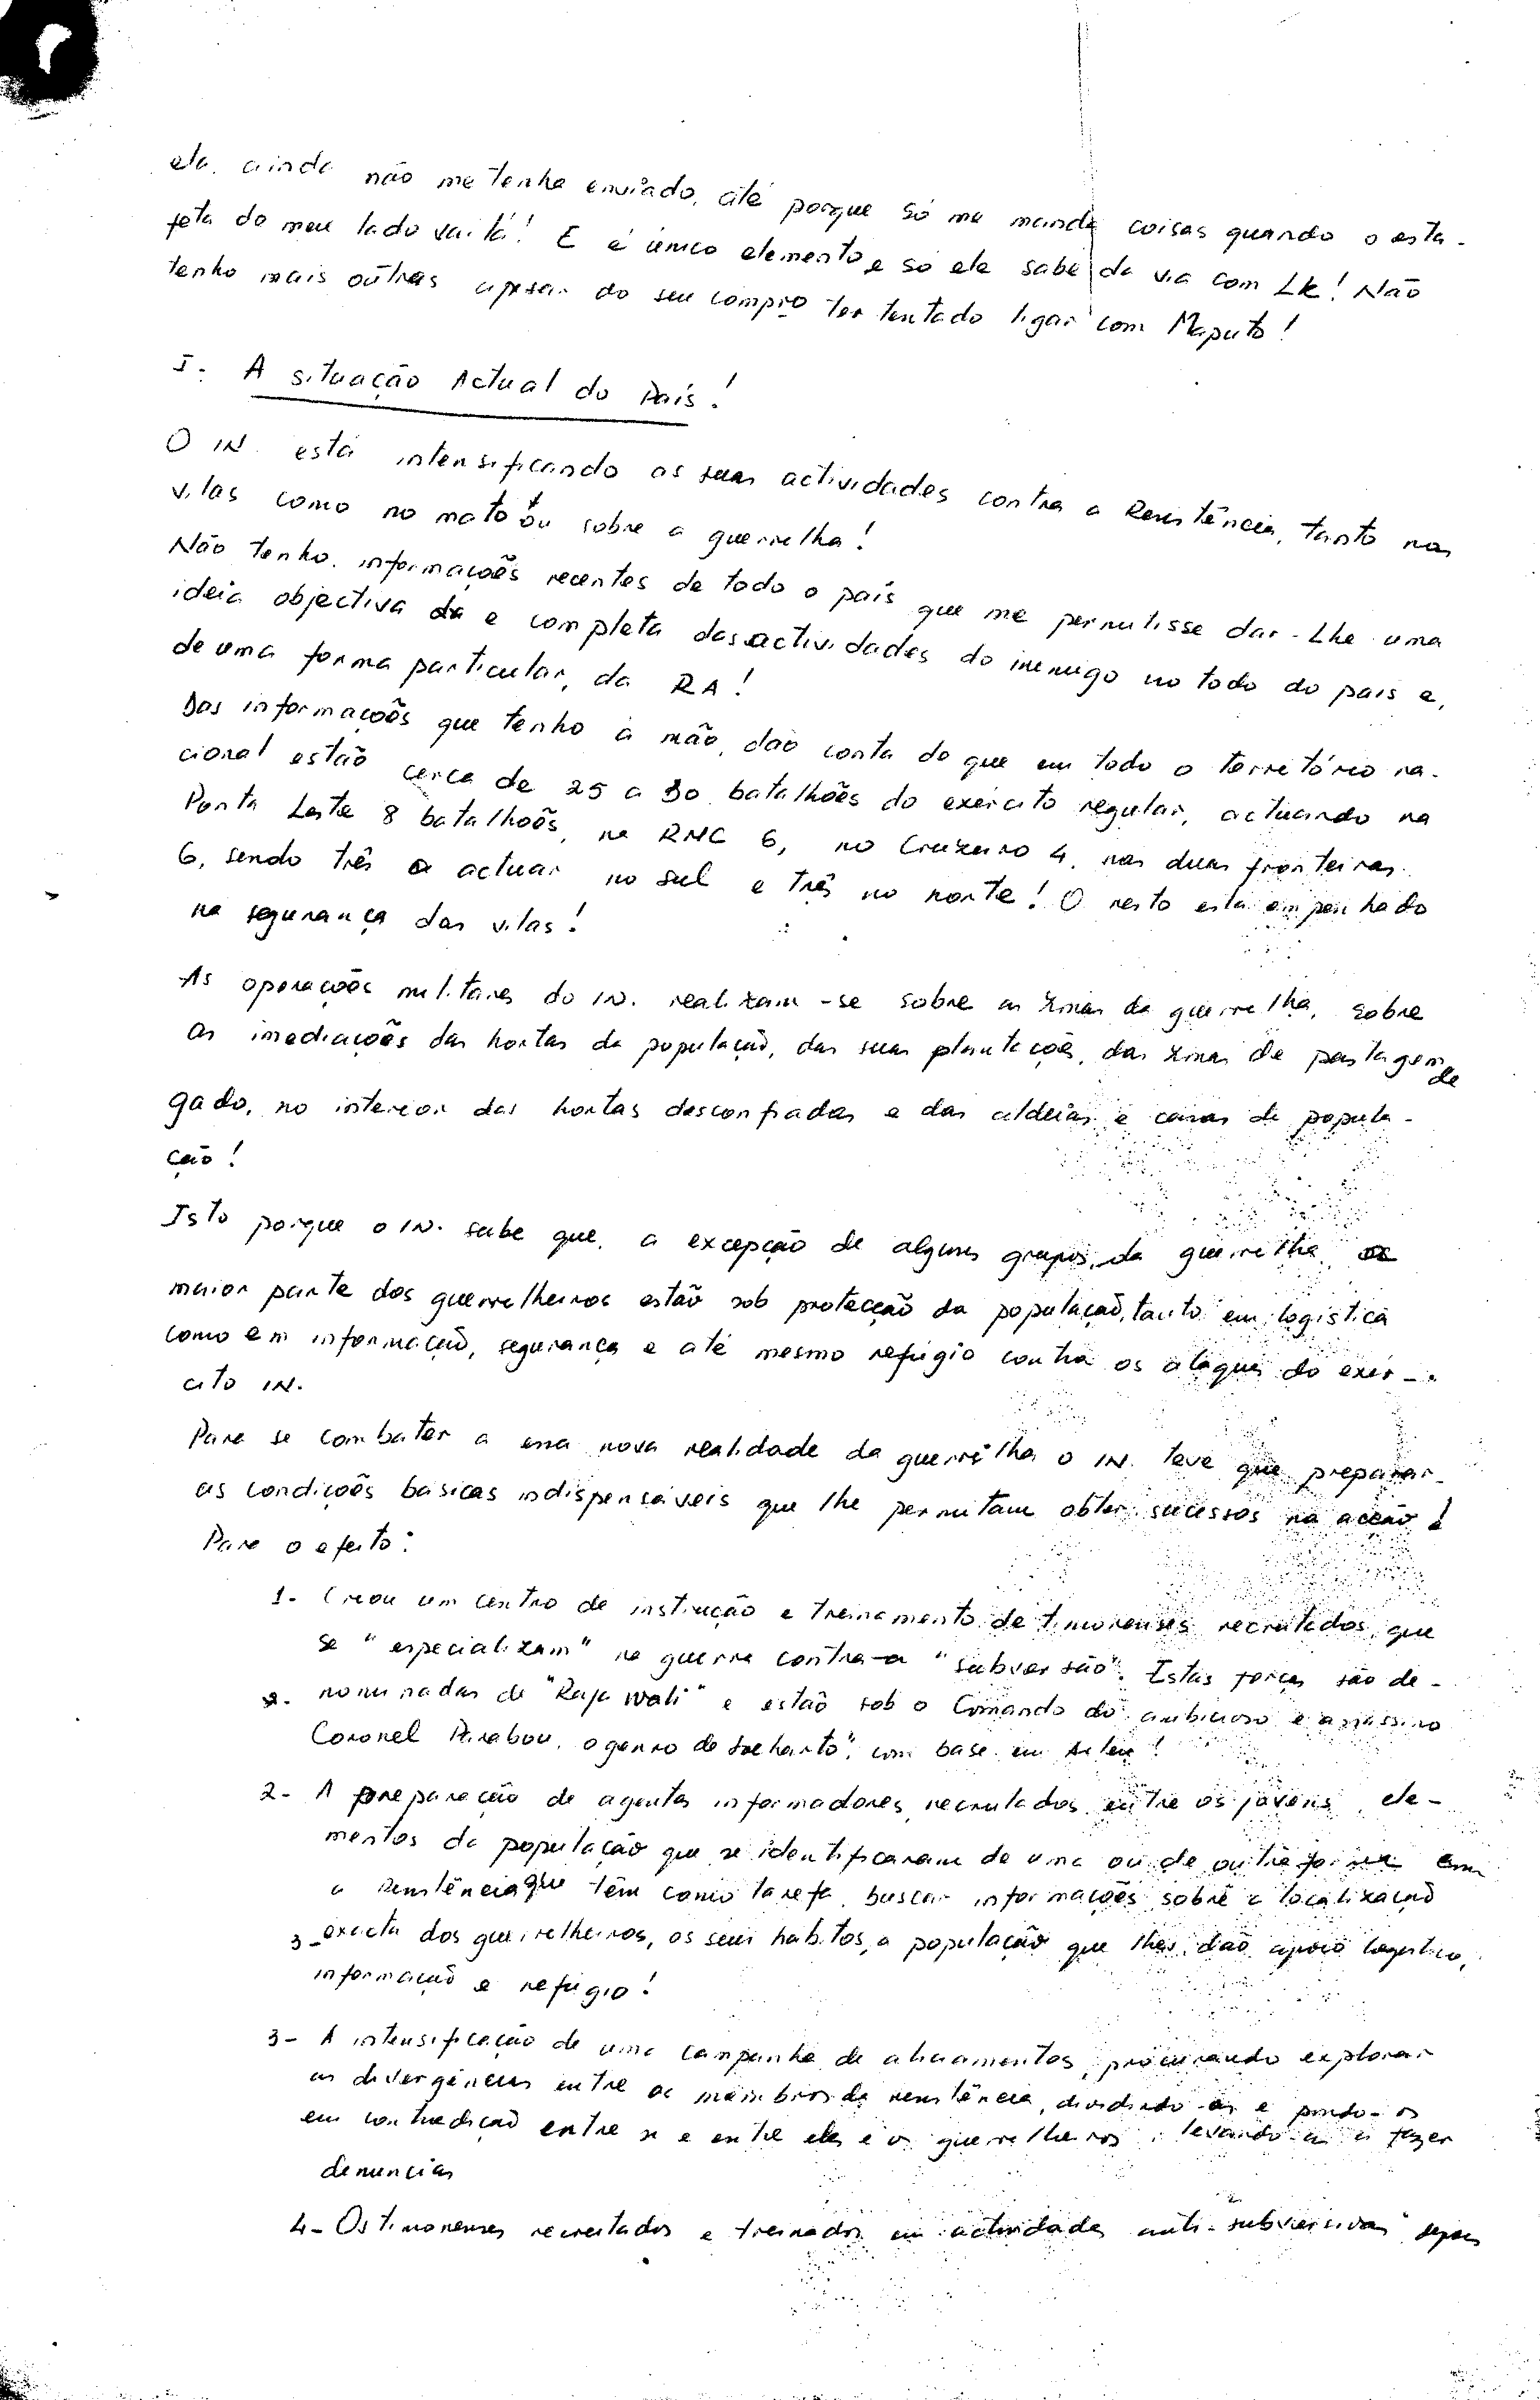 ele ainda não me tenha enviado, até porque só me manda coisas quando o esta-
feta do meu lado vai lá! E é único elemento e só ele sabe da via com Lk! Não
tenho mais outras apesar do seu compro ter tentado ligar com Maputo!
I. A situação Actual do País!
O IN. está intensificando as suas actividades contra a Resistência, tanto nas
vilas como no mato ou sobre a guerrilha!
Não tenho informações recentes de todo o país que me permitisse dar-Lhe uma
ideia objectiva da e completa das actividades do inimigo no todo do país e,
de uma forma particular, da RA!
Das informações que tenho à mão, dão conta de que em todo o território na-
cional estão cerca de 25 a 30 batalhões do exército regular, actuando na
Ponta Leste 8 batalhões, na RNC 6, no Cruzeiro 4, nas duas fronteiras
6, sendo três a actuar no sul e três no norte! O resto está empenhado
na segurança das vilas!
As operações militares do IN. realizam-se sobre as zonas da guerrilha, sobre
as imediações das hortas da população, das suas plantações, das zonas de pastagem de
gado, no interior das hortas desconfiadas e das aldeias e casas de popula-
ção!
Isto porque o IN. sabe que, a excepção de alguns grupos da guerrilha, a
maior parte dos guerrilheiros estão sob protecção da população, tanto em logística
como em informação, segurança e até mesmo refúgio contra os ataques do exér-
cito IN.
Para se combater a essa nova realidade da guerrilha o IN. teve que preparar
as condições básicas indispensáveis que lhe permitam obter sucessos na acção!
Para o efeito:
1. Criou um centro de instrução e treinamento de timorenses recrutados, que
se "especializam" na guerra contra a "subversão". Estas forças são de-
nominadas de "Raja Wali" e estão sob o Comando do ambicioso e assassino
Coronel Prabou, o genro de Soeharto", com base em Aileu!
2- A preparação de agentes informadores, recrutados entre os jovens, ele-
mentos da população que se identificaram de uma ou de outra forma com
a Resistência que têm como tarefa, buscar informações sobre a localização
3- exacta dos guerrilheiros, os seus hábitos, a população que lhes dão apoio logístico,
informação e refúgio!
3- A intensificação de uma campanha de aliciamentos, procurando explorar
as divergências entre os membros da resistência, dividindo-os e pondo-os
em contradição entre si e entre eles e os guerrilheiros, levando-os a fazer
denúncias
4- Os timorenses recrutados e treinados em actividades anti-subversivas